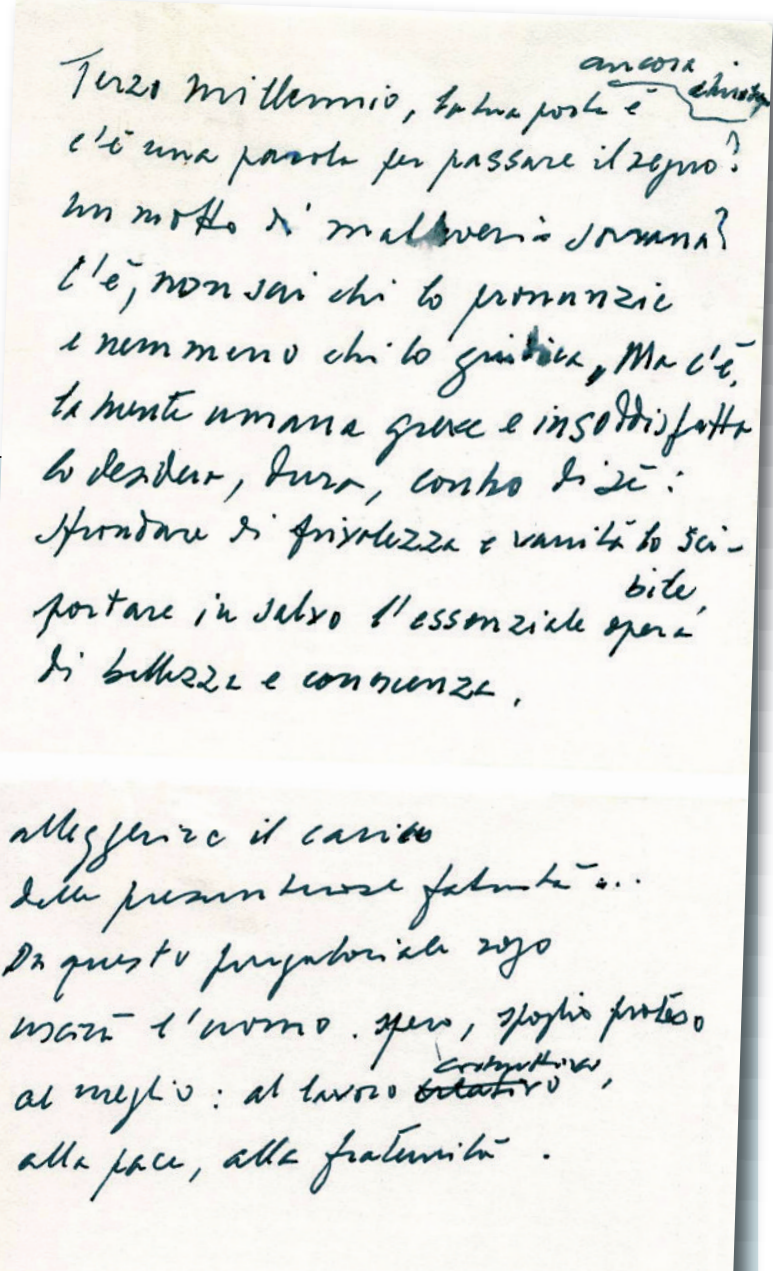 Terzo millennio, la tua porta è ancora
c'è una parola per passare il segno?
un motto di malleveria sovrana?
C'è, non sai chi lo pronunzia
e nemmeno chi lo giudica, Ma c'è,
la mente umana greve e insoddisfatta
lo desidera, dura, contro di sé:
sfrondare di frivolezza e vanità lo sci-
bile,
portare in salvo l'essenziale opera
di bellezza e conoscenza,
alleggerire il carico
delle presuntuose fatuità...
Da questo purgatoriale rogo
uscirà l'uomo. spero, spoglio proteso
al meglio: al lavoro costruttivo,
alla pace, alla fraternità.